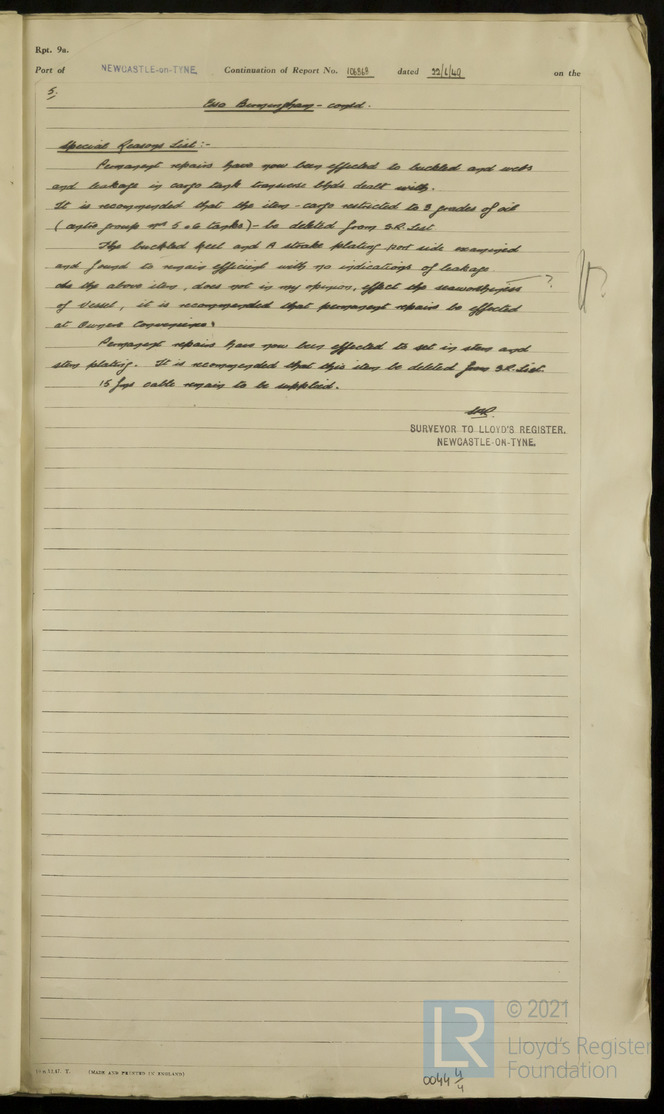 Rpt. 9a.
Port of NEWCASTLE-on-TYNE. Continuation of Report No. 106868 dated 22/6/49 on the
5.
Esso Birmingham - contd.
Special Reasons List :-
Permanent repairs have now been effected to buckled and webs
and leakage in cargo tank transverse blhds dealt with.
It is recommended that the item - cargo restricted to 3 grades of oil
(centre group nos 5 & 6 tanks) - be deleted from S.R. List
The buckled keel and A strake plating port side examined
and found to remain efficient with no indications of leakage
As the above item, does not in my opinion, effect the seaworthiness ?
of vessel, it is recommended that permanent repairs be effected
at Owners convenience.
Permanent repairs have now been effected to set in stem and
stem plating. It is recommended that this item be deleted from S.R. List.
15 fms cable remain to be supplied.
SURVEYOR TO LLOYD'S REGISTER.
NEWCASTLE-ON-TYNE.
(MADE AND PRINTED IN ENGLAND)
0044 4/4
LR
© 2021
Lloyd's Register
Foundation